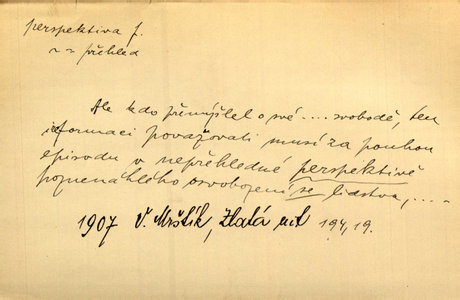 perspektiva f.
~ = přehled
Ale kdo přemýšlel o své .... svobodě, ten
reformaci považovati musí za pouhou
episodu v nepřehledné perspektivě
poznenáhlého osvobození se lidstva, ....
1907 V. Mrštík, Zlatá nit 194,19.